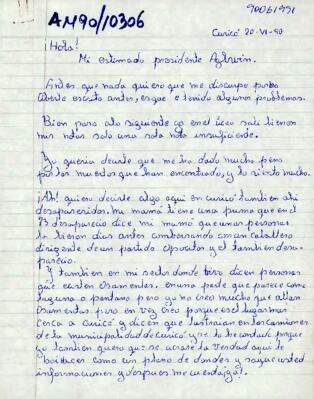 90061991
AM90/10306
Curicó 20-VI-90
¡Hola!
Mi estimado presidente Aylwin.
Antes que nada quiero que me disculpe por no
aberte escrito antes, es que e tenido algunos problemas.
Bien para ato siguiente en el liceo sali tienon
mas notas solo una nota insuficiente.
Yo queria decirte que me ha dado mucha pena
por los muertos que han encontrado, y lo siento mucho.
¡Ah! quiero decirte algo aqui en curicó tambien ahi
desaparecidos. mi mama tiene una prima que en el
73 desaparecio dice mi mamá que unas personas
la vieron dias antes conversando con un caballero
dirigente de un partido opositor y el tambien desa-
parecio.
Y tambien en mi sector donde vivo dicen personas
que existen osamentas. en una parte que parece como
laguna o pantano pero yo no creo mucho que allan
osamentas pero en vez creo porque es el lugar mas
cerca a curicó y dicen que las traian en los camiones
de la municipalidad de curicó y te lo he contado porque
yo tambien quiero que se aclare la verdad aqui te
como un plano de donde y saque usted
informaciones y despues me cuenta ¡ya!.